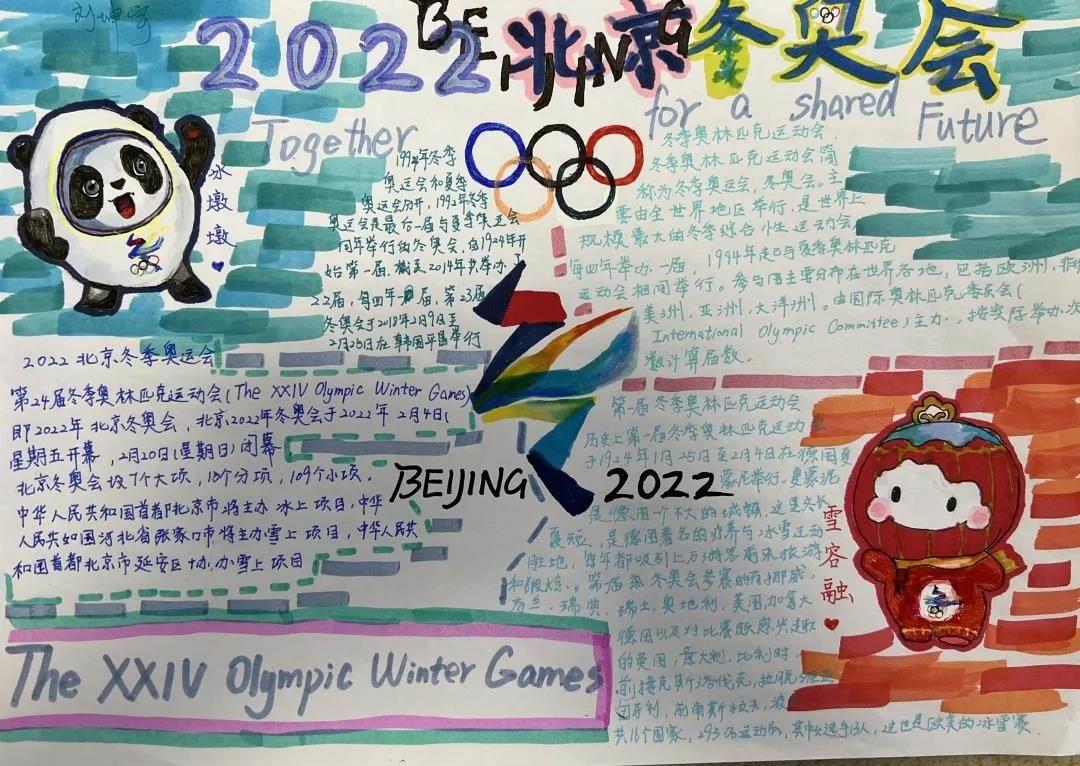 刘坤宇
2022北京冬奥会
BEIJING
Together for a shared Future
冰墩墩
1992年冬季
奥运会和夏季
奥运会分开，1992年冬季
奥运会是最后一届与夏季奥运会
同年举行的冬奥会，自1924年开
始第一届，截至2014年共举办了
22届，每四年一届，第23届
冬奥会于2018年2月9日至
2月25日在韩国平昌举行
冬季奥林匹克运动会
冬季奥林匹克运动会简
称为冬季奥运会，冬奥会。主
要由全世界地区举行，是世界上
规模最大的冬季综合性运动会，
每四年举办一届，1994年起与夏季奥林匹克
运动会相间举行。参与国主要分布在世界各地，包括欧洲，非
美洲，亚洲，大洋洲。由国际奥林匹克委员会（
International Olympic Committee）主办，按实际举办次
数计算届数。
2022北京冬季奥运会
第24届冬季奥林匹克运动会（The XXIV Olympic Winter Games）
即2022年北京冬奥会，北京2022年冬奥会于2022年2月4日（
星期五开幕，2月20日（星期日）闭幕，
北京冬奥会设7个大项，15个分项，109个小项。
中华人民共和国首都北京市将主办冰上项目，中华
人民共和国河北省张家口市将主办雪上项目，中华人民共
和国首都北京市延安区协办雪上项目
BEIJING 2022
第一届冬季奥林匹克运动会
历史上第一届冬季奥林匹克运动会
于1924年1月25日至2月4日在德国夏
蒙尼举行，夏蒙尼
是德国一个不大的城镇，这里冬长
夏短，是德国著名的疗养与冰雪运动
胜地，每年都吸引上万游客前来旅游
和锻炼。第一届冬奥会参赛的有挪威，
芬兰，瑞典，瑞士，奥地利，美国，加拿大
德国以及对比赛颇感兴趣
的英国，意大利，比利时，
前捷克斯洛伐克，拉脱维亚
匈牙利，前南斯拉夫，波
共16个国家，293名运动员，其中女选手13人，这也是欧美的冰雪赛
雪容融
The XXIV Olympic Winter Games